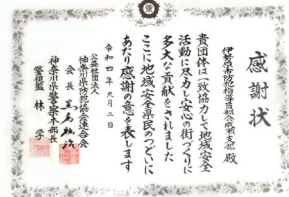 感謝状
伊勢原市防犯指導員会成瀬支部 殿
貴団体は一致協力して地域安全
活動に尽力し安心の街づくりに
多大な貢献をされました
ここに地域安全県民のつどいに
あたり感謝の意を表します
令和四年九月二日
公益社団法人
神奈川県防犯協会連合会
会長
神奈川県警察本部長
警視監 林 学